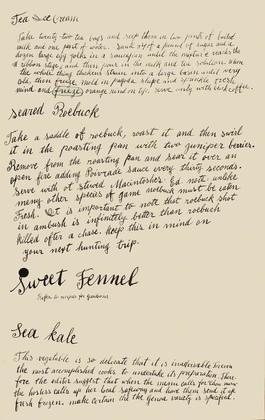 Tea Ice Cream
Take twenty two tea bags and steep them in two pints of boiled
milk and one part of water. Sauté 1/4 of a pound of sugar and a
dozen large egg yolks in a saucepan until the mixture reaches the
ribbon stage, and then pour in the milk and tea solution when
the whole thing thickens strain into a large basin until very
ole, then freeze, mold in pagoda shape and sprinkle fresh
mind and (freeze) orange mind on it. serve only with iced coffee.
Seared Roebuck
Take a saddle of roebuck, roast it and then swirl
it in the roasting pan with two juniper berries.
Remove from the roasting pan and sear it over an
open fire adding Poivrade sauce every thirty seconds.
Serve with stewed Macintoshes. Ed note: unlike
many other species of game roebuck must be eaten
Fresh. It is important to note that roebuck shot
in ambush is infinitely better than roebuck
killed after a chase. keep this in mind on
your next hunting trip.
Sweet Fennel
Refer to recipes for
Sea Kale
This vegetable is so delicate that it is inadvisable
the most accomplished cooks to undertake its preparation. There
fore the editors suggest that when the menu calls for
the hostess calls up her local safeway and have them send it up
fresh frozen. make certain its the Genoa variety is specified.